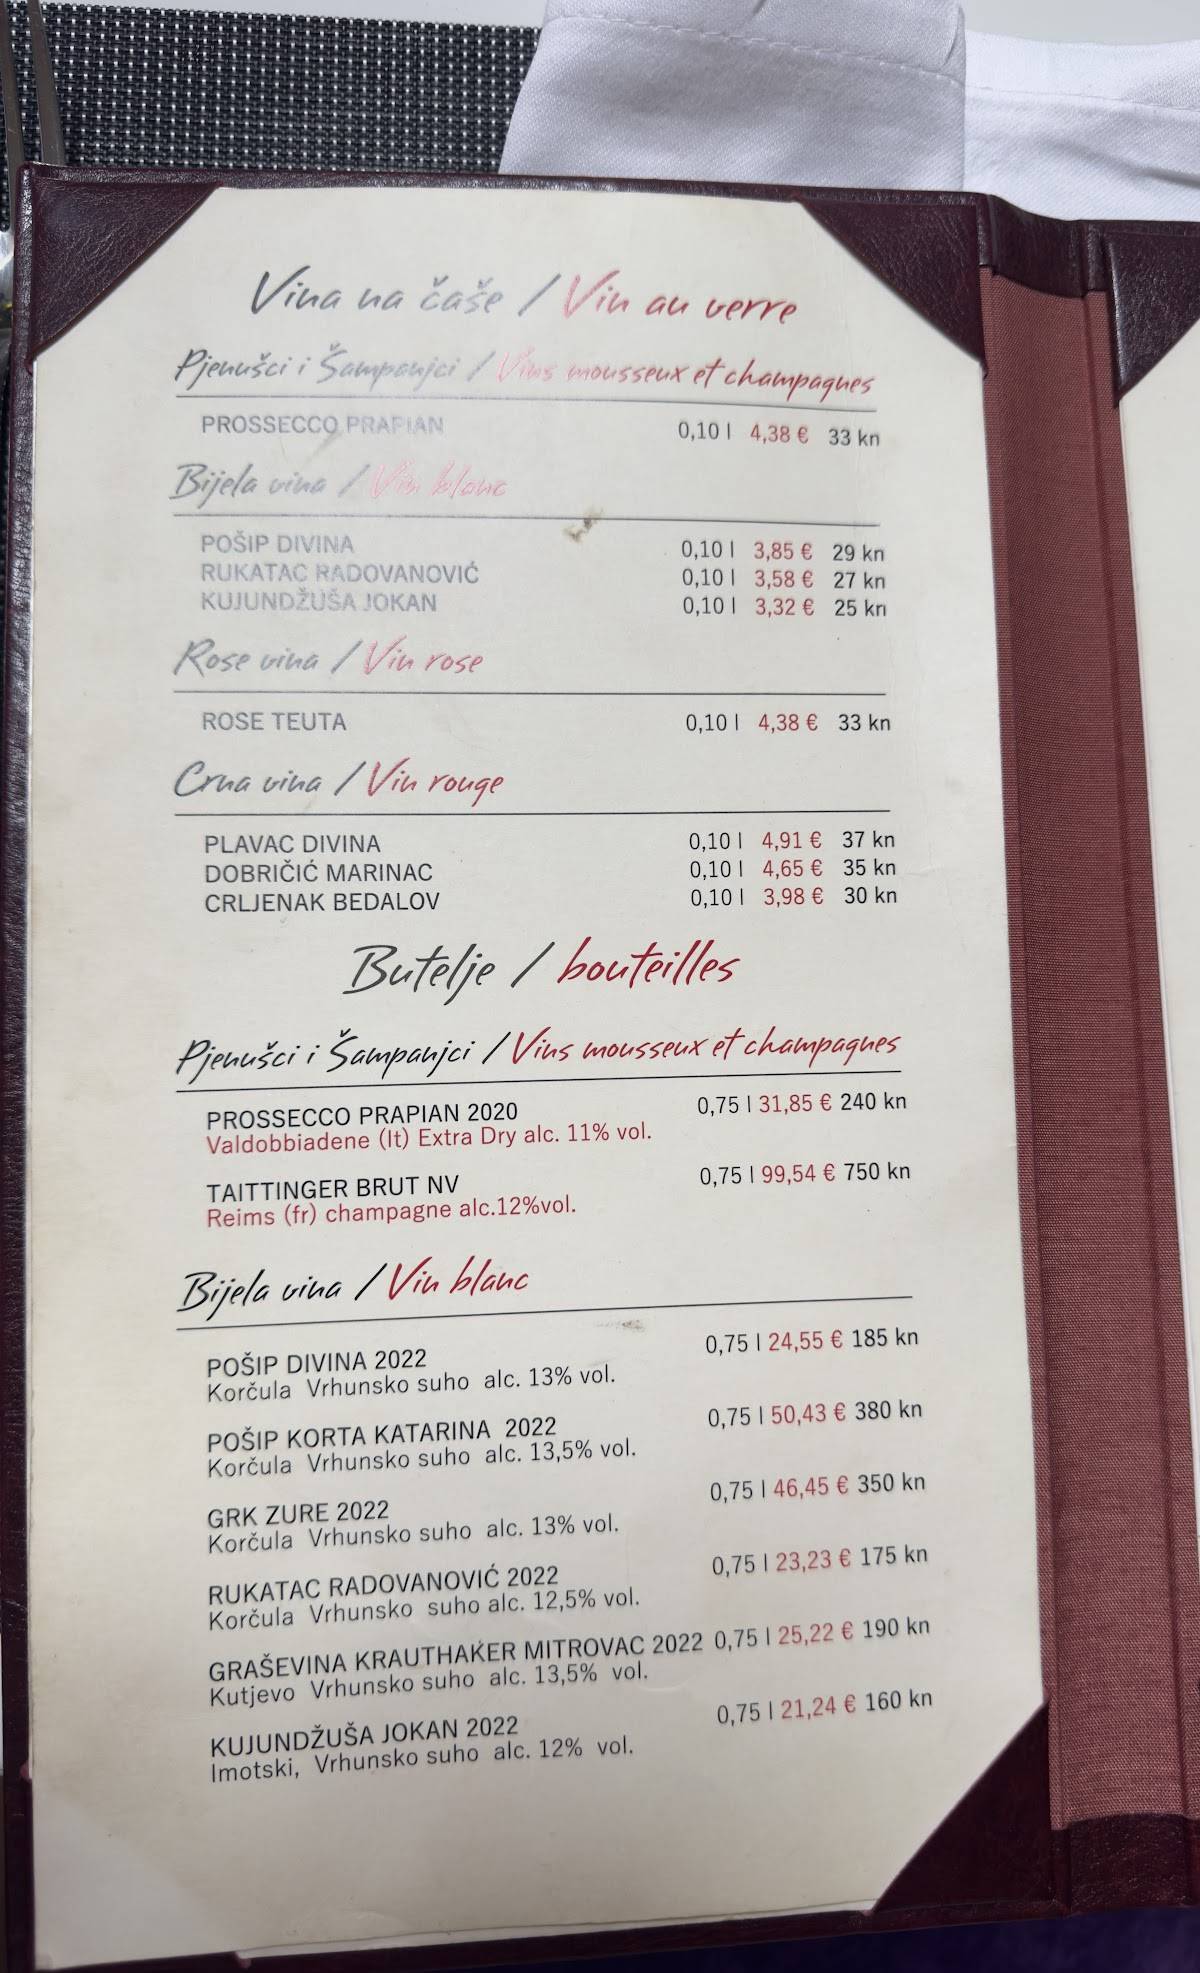 Vina na čaše / Vin au verre
Pjenušci i Šampanjci / Vins mousseux et champagnes
PROSSECCO PRAPIAN 0,10 l 4,38 € 33 kn
Bijela vina / Vin blanc
POŠIP DIVINA 0,10 l 3,85 € 29 kn
RUKATAC RADOVANOVIĆ 0,10 l 3,58 € 27 kn
KUJUNDŽUŠA JOKAN 0,10 l 3,32 € 25 kn
Rose vina / Vin rose
ROSE TEUTA 0,10 l 4,38 € 33 kn
Crna vina / Vin rouge
PLAVAC DIVINA 0,10 l 4,91 € 37 kn
DOBRIČIĆ MARINAC 0,10 l 4,65 € 35 kn
CRLJENAK BEDALOV 0,10 l 3,98 € 30 kn
Butelje / bouteilles
Pjenušci i Šampanjci / Vins mousseux et champagnes
PROSSECCO PRAPIAN 2020 0,75 l 31,85 € 240 kn
Valdobbiadene (It) Extra Dry alc. 11% vol.
TAITTINGER BRUT NV 0,75 l 99,54 € 750 kn
Reims (fr) champagne alc.12%vol.
Bijela vina / Vin blanc
POŠIP DIVINA 2022 0,75 l 24,55 € 185 kn
Korčula Vrhunsko suho alc. 13% vol.
POŠIP KORTA KATARINA 2022 0,75 l 50,43 € 380 kn
Korčula Vrhunsko suho alc. 13,5% vol.
GRK ZURE 2022 0,75 l 46,45 € 350 kn
Korčula Vrhunsko suho alc. 13% vol.
RUKATAC RADOVANOVIĆ 2022 0,75 l 23,23 € 175 kn
Korčula Vrhunsko suho alc. 12,5% vol.
GRAŠEVINA KRAUTHAKER MITROVAC 2022 0,75 l 25,22 € 190 kn
Kutjevo Vrhunsko suho alc. 13,5% vol.
KUJUNDŽUŠA JOKAN 2022 0,75 l 21,24 € 160 kn
Imotski, Vrhunsko suho alc. 12% vol.